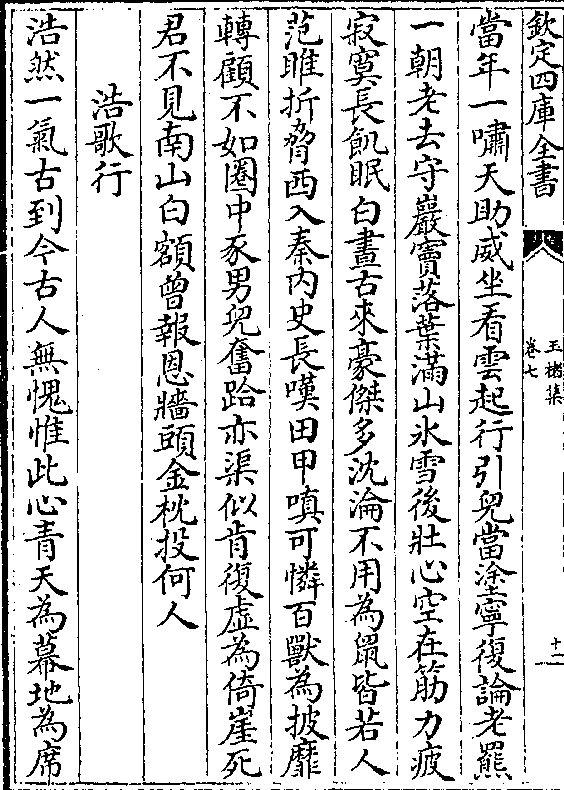 欽定四庫全書
玉楮集
卷七
十一
當年一嘯天助威坐看雲起行引兒當塗寧復論老羆
一朝老去守巖竇落葉滿山氷雪後壯心空在筋力疲
寂寞長飢眠白晝古來豪傑多沈淪不用為鼠皆若人
范睢折脅西入秦内史長嘆田甲嗔可憐百獸為披靡
轉顧不如圈中豕男兒奮跲亦渠似肯復虚為倚崖死
君不見南山白額曾報恩牆頭金枕投何人
浩歌行
浩然一氣古到今古人無愧惟此心青天為幕地為席